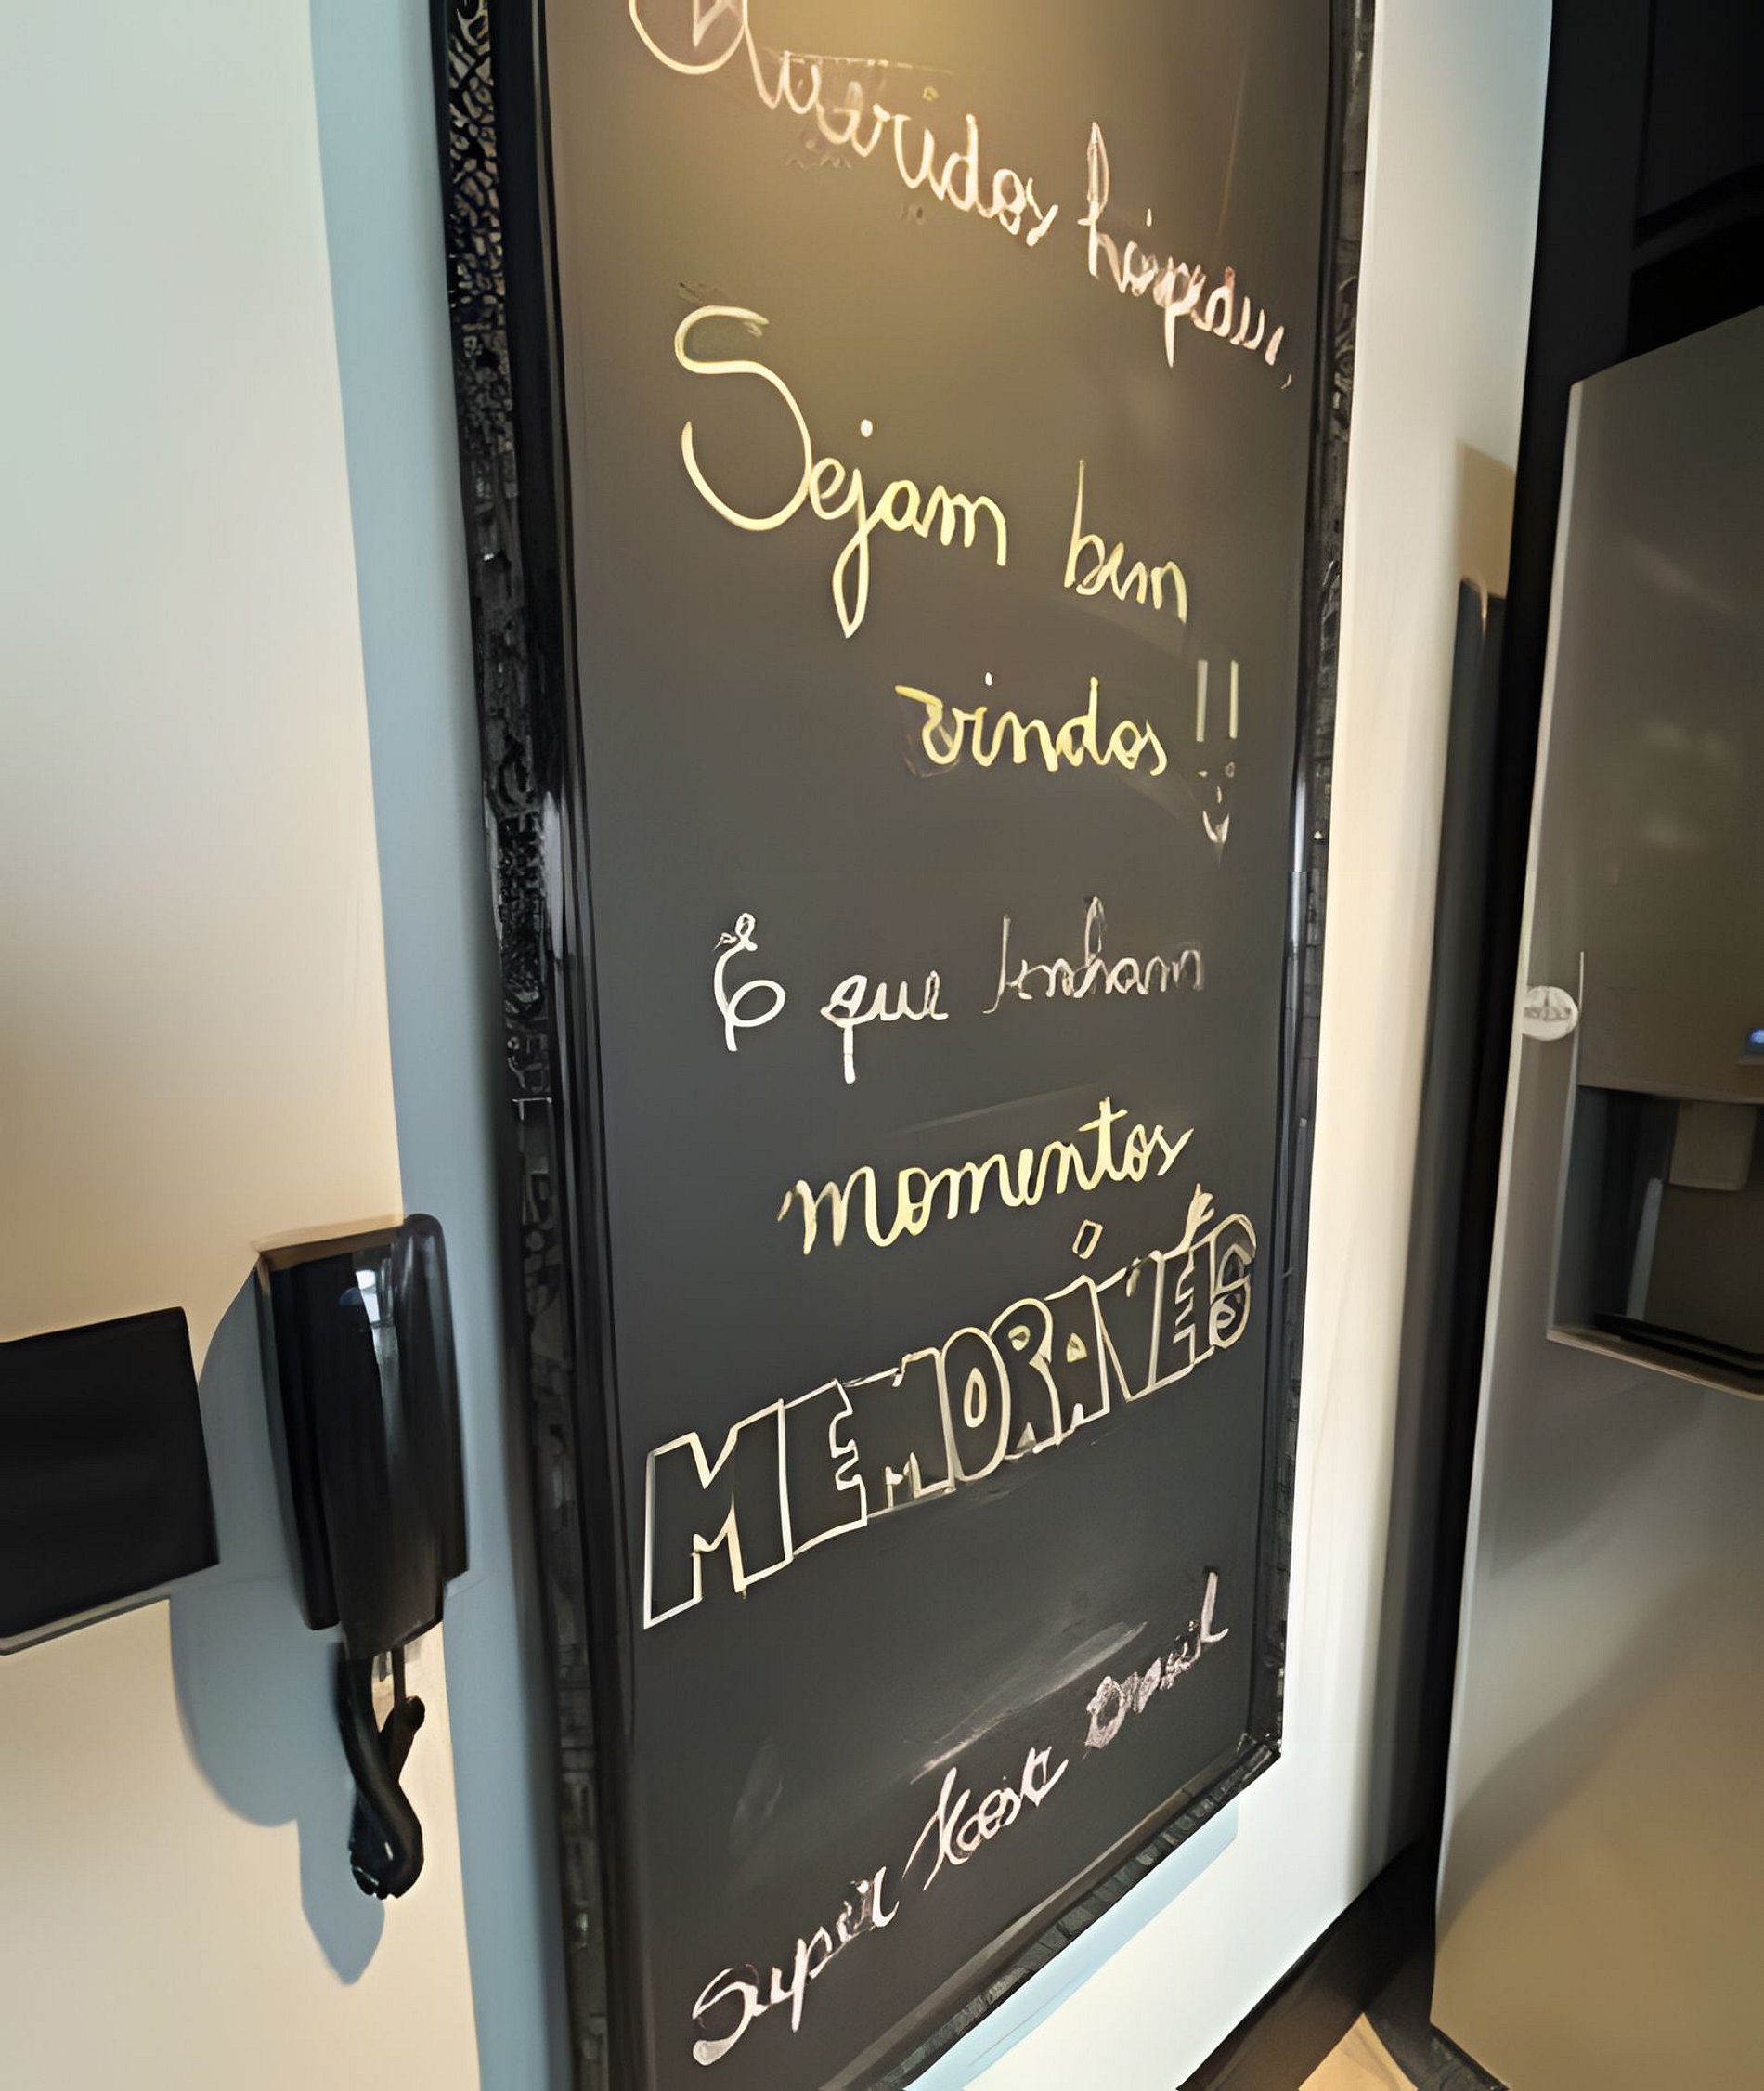 Queridos hóspedes,
Sejam bem
vindos!!
E que tenham
momentos
MEMORÁVEIS
Super Host